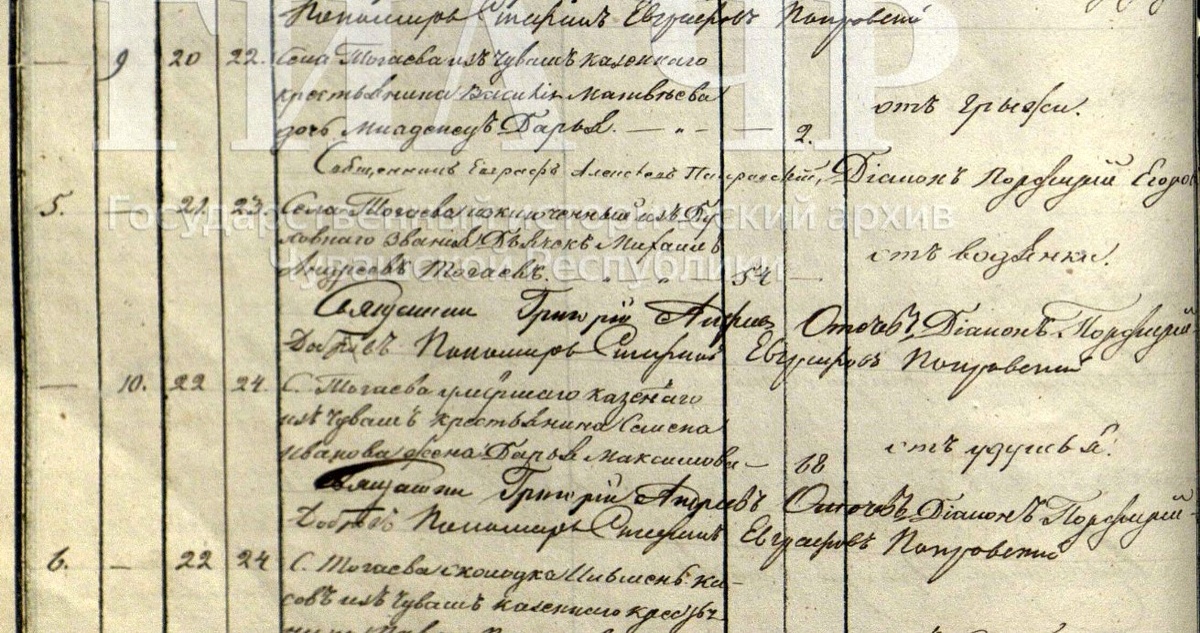 Пономарь Стефанъ Евграфовъ Покровский
— 9 20 22. Села Тогаева изъ Чувашъ казеннаго
крестьянина Василія Матвѣева
дочь младенецъ Дарья. — „ — — 2. отъ грыжи.
Священникъ Евграфъ Алексѣевъ Покровскій, Діаконъ Порфирій Егоровъ
5. — 21 23 Села Тогаева исключенный изъ Ду-
ховнаго званія Дьячекъ Михаилъ
Андреевъ Тогаевъ. 54 — отъ водянки.
Священникъ Григорій Андреевъ Діаконъ Порфирій
Пономарь Стефанъ Евграфовъ Покровский
— 10. 22 24. С. Тогаева умершаго казеннаго
изъ Чувашъ крестьянина Семена
Иванова жена Дарья Максимова — 68 отъ удушья.
Священникъ Григорій Андреевъ Діаконъ Порфирій
Пономарь Стефанъ Евграфовъ Покровский
6. — 22 24 С. Тогаева околодка ка-
совъ изъ Чувашъ казеннаго крестья-
ГИА ЧР
Государственный исторический архив
Чувашской Республики